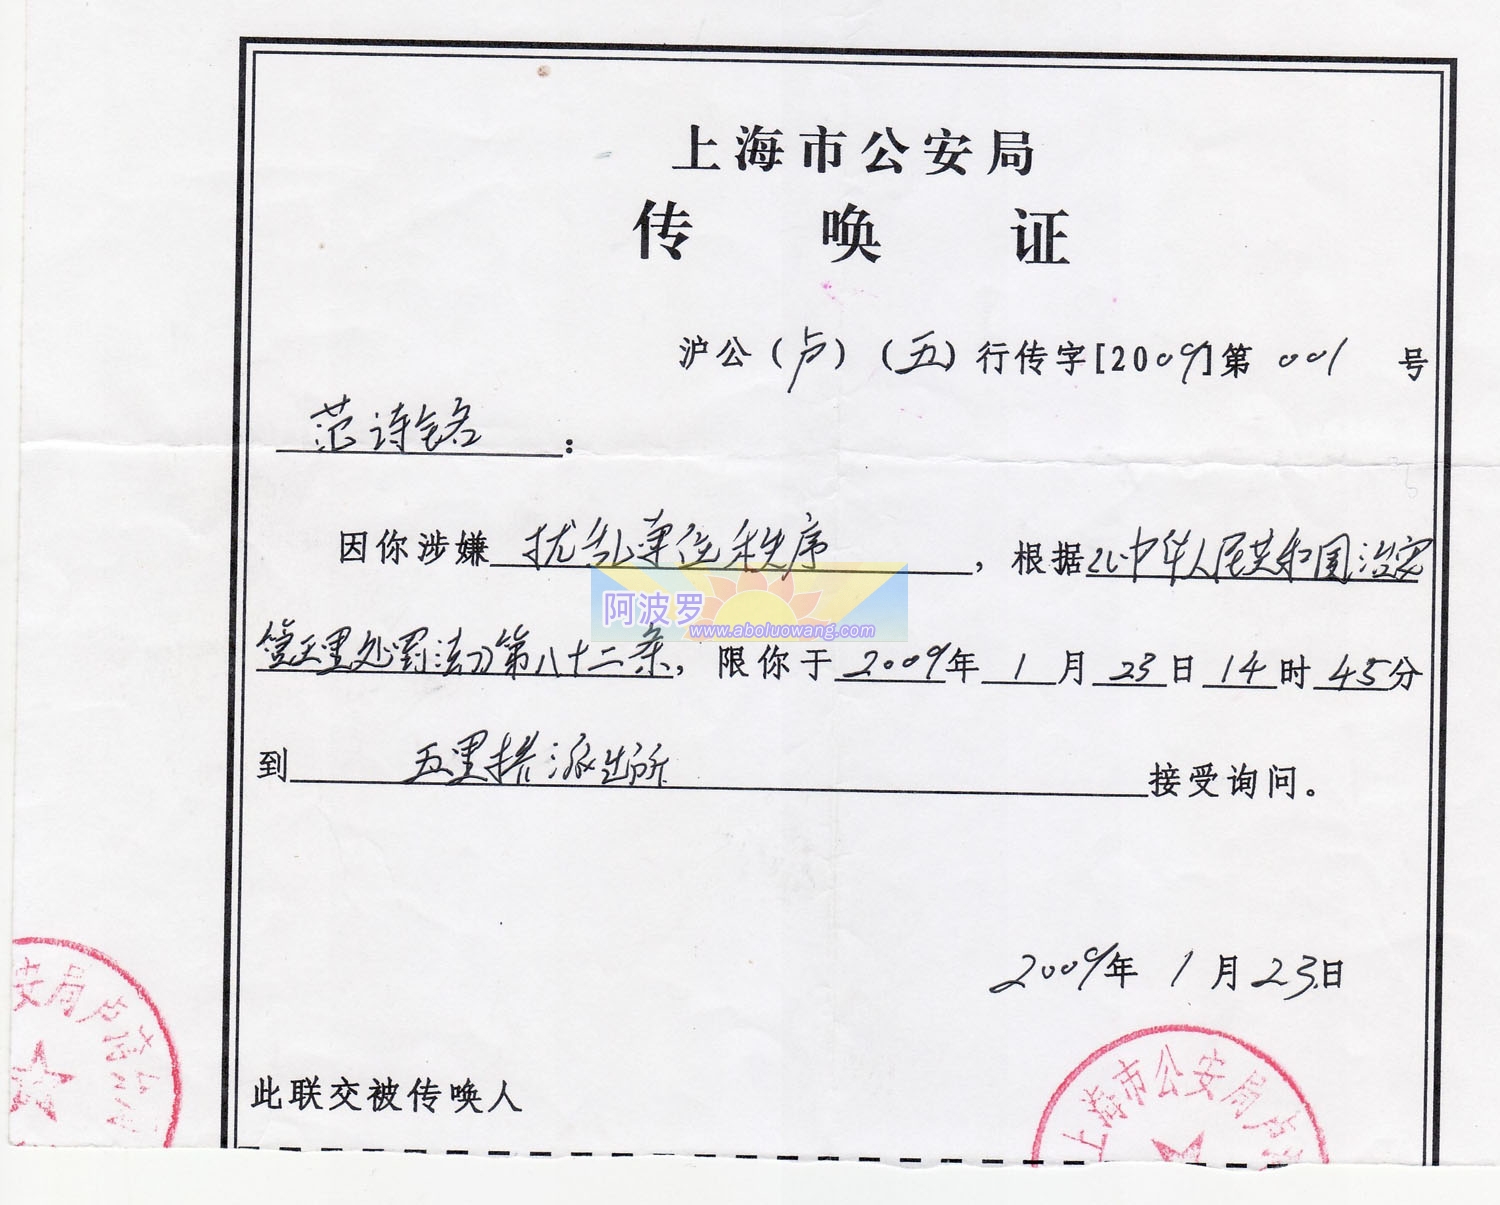 上海市公安局
传唤证
沪公（卢）（五）行传字[2009]第001号
范诗铭：
因你涉嫌扰乱单位秩序，根据《中华人民共和国治安
管理处罚法》第八十二条，限你于2009年1月23日14时45分
阿波罗
www.aboluowang.com
到五里桥派出所接受询问。
2009年1月23日
安局卢湾分局
此联交被传唤人
上海市公安局卢湾